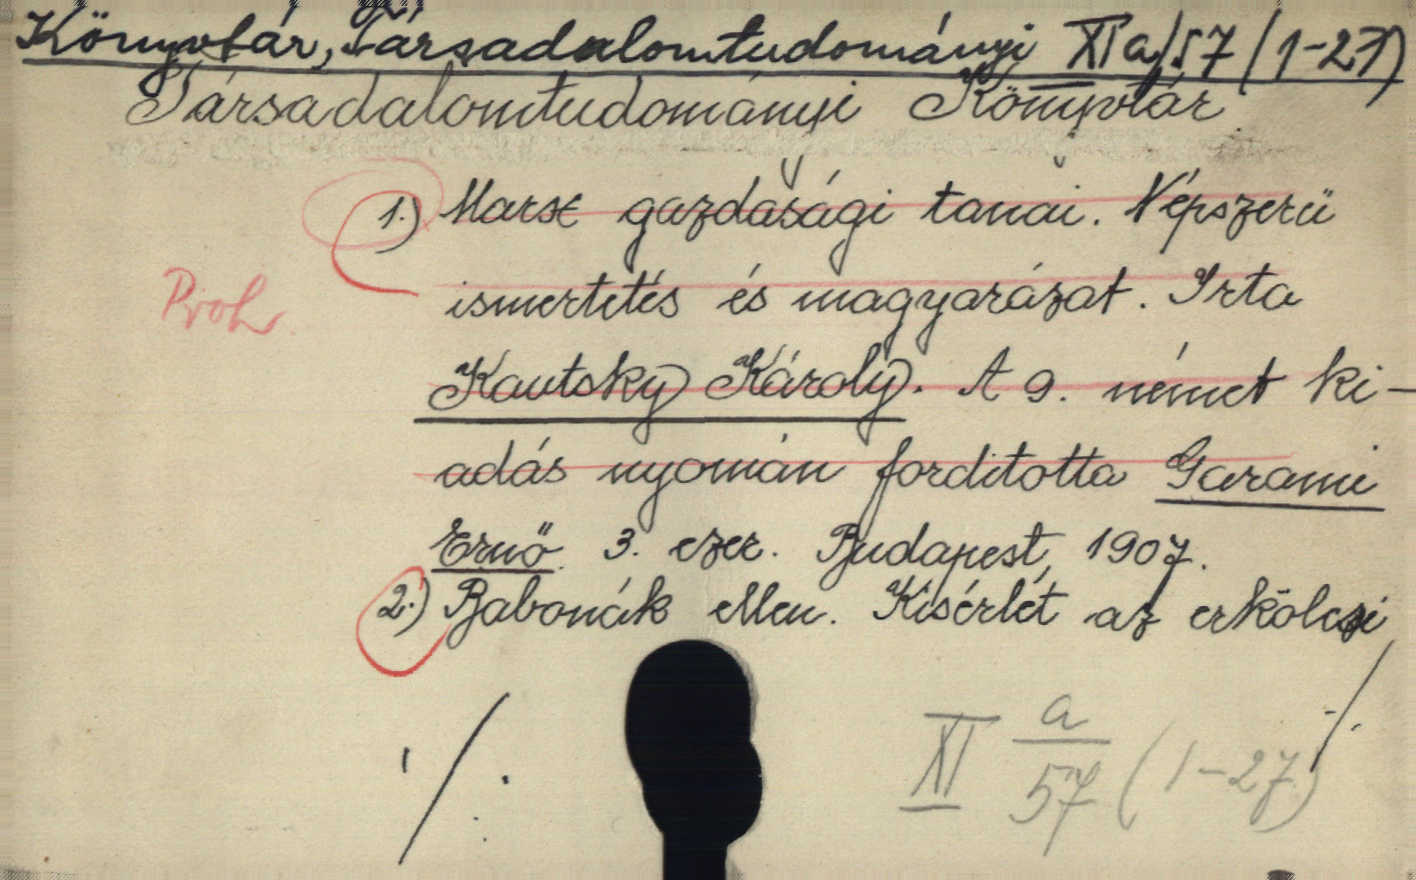 Könyvtár, Társadalomtudományi XI a/57 (1-27)
Társadalomtudományi Könyvtár
1.) Marx gazdasági tanai. Népszerü
ismertetés és magyarázat. Irta
Proh.
Kautsky Károly. A 9. német ki-
adás nyomán forditotta Garami
Ernő. 3. ezer. Budapest, 1907.
2.) Babonák ellen. Kisérlet az erkölcsi
./.
XI a/57 (1-27)
./.